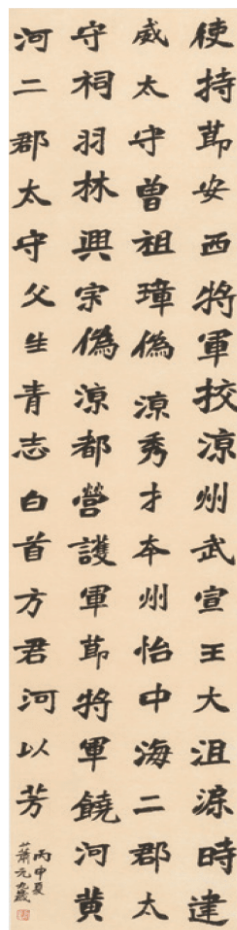 使持莭安西將軍挍涼州武宣王大沮渠時建
威太守曾祖璋偽涼秀才本州怡中海二郡太
守祠羽林興宗偽涼都營護軍莭將軍饒河黄
河二郡太守父生青志白首方君河以芳
丙申夏
蕭元